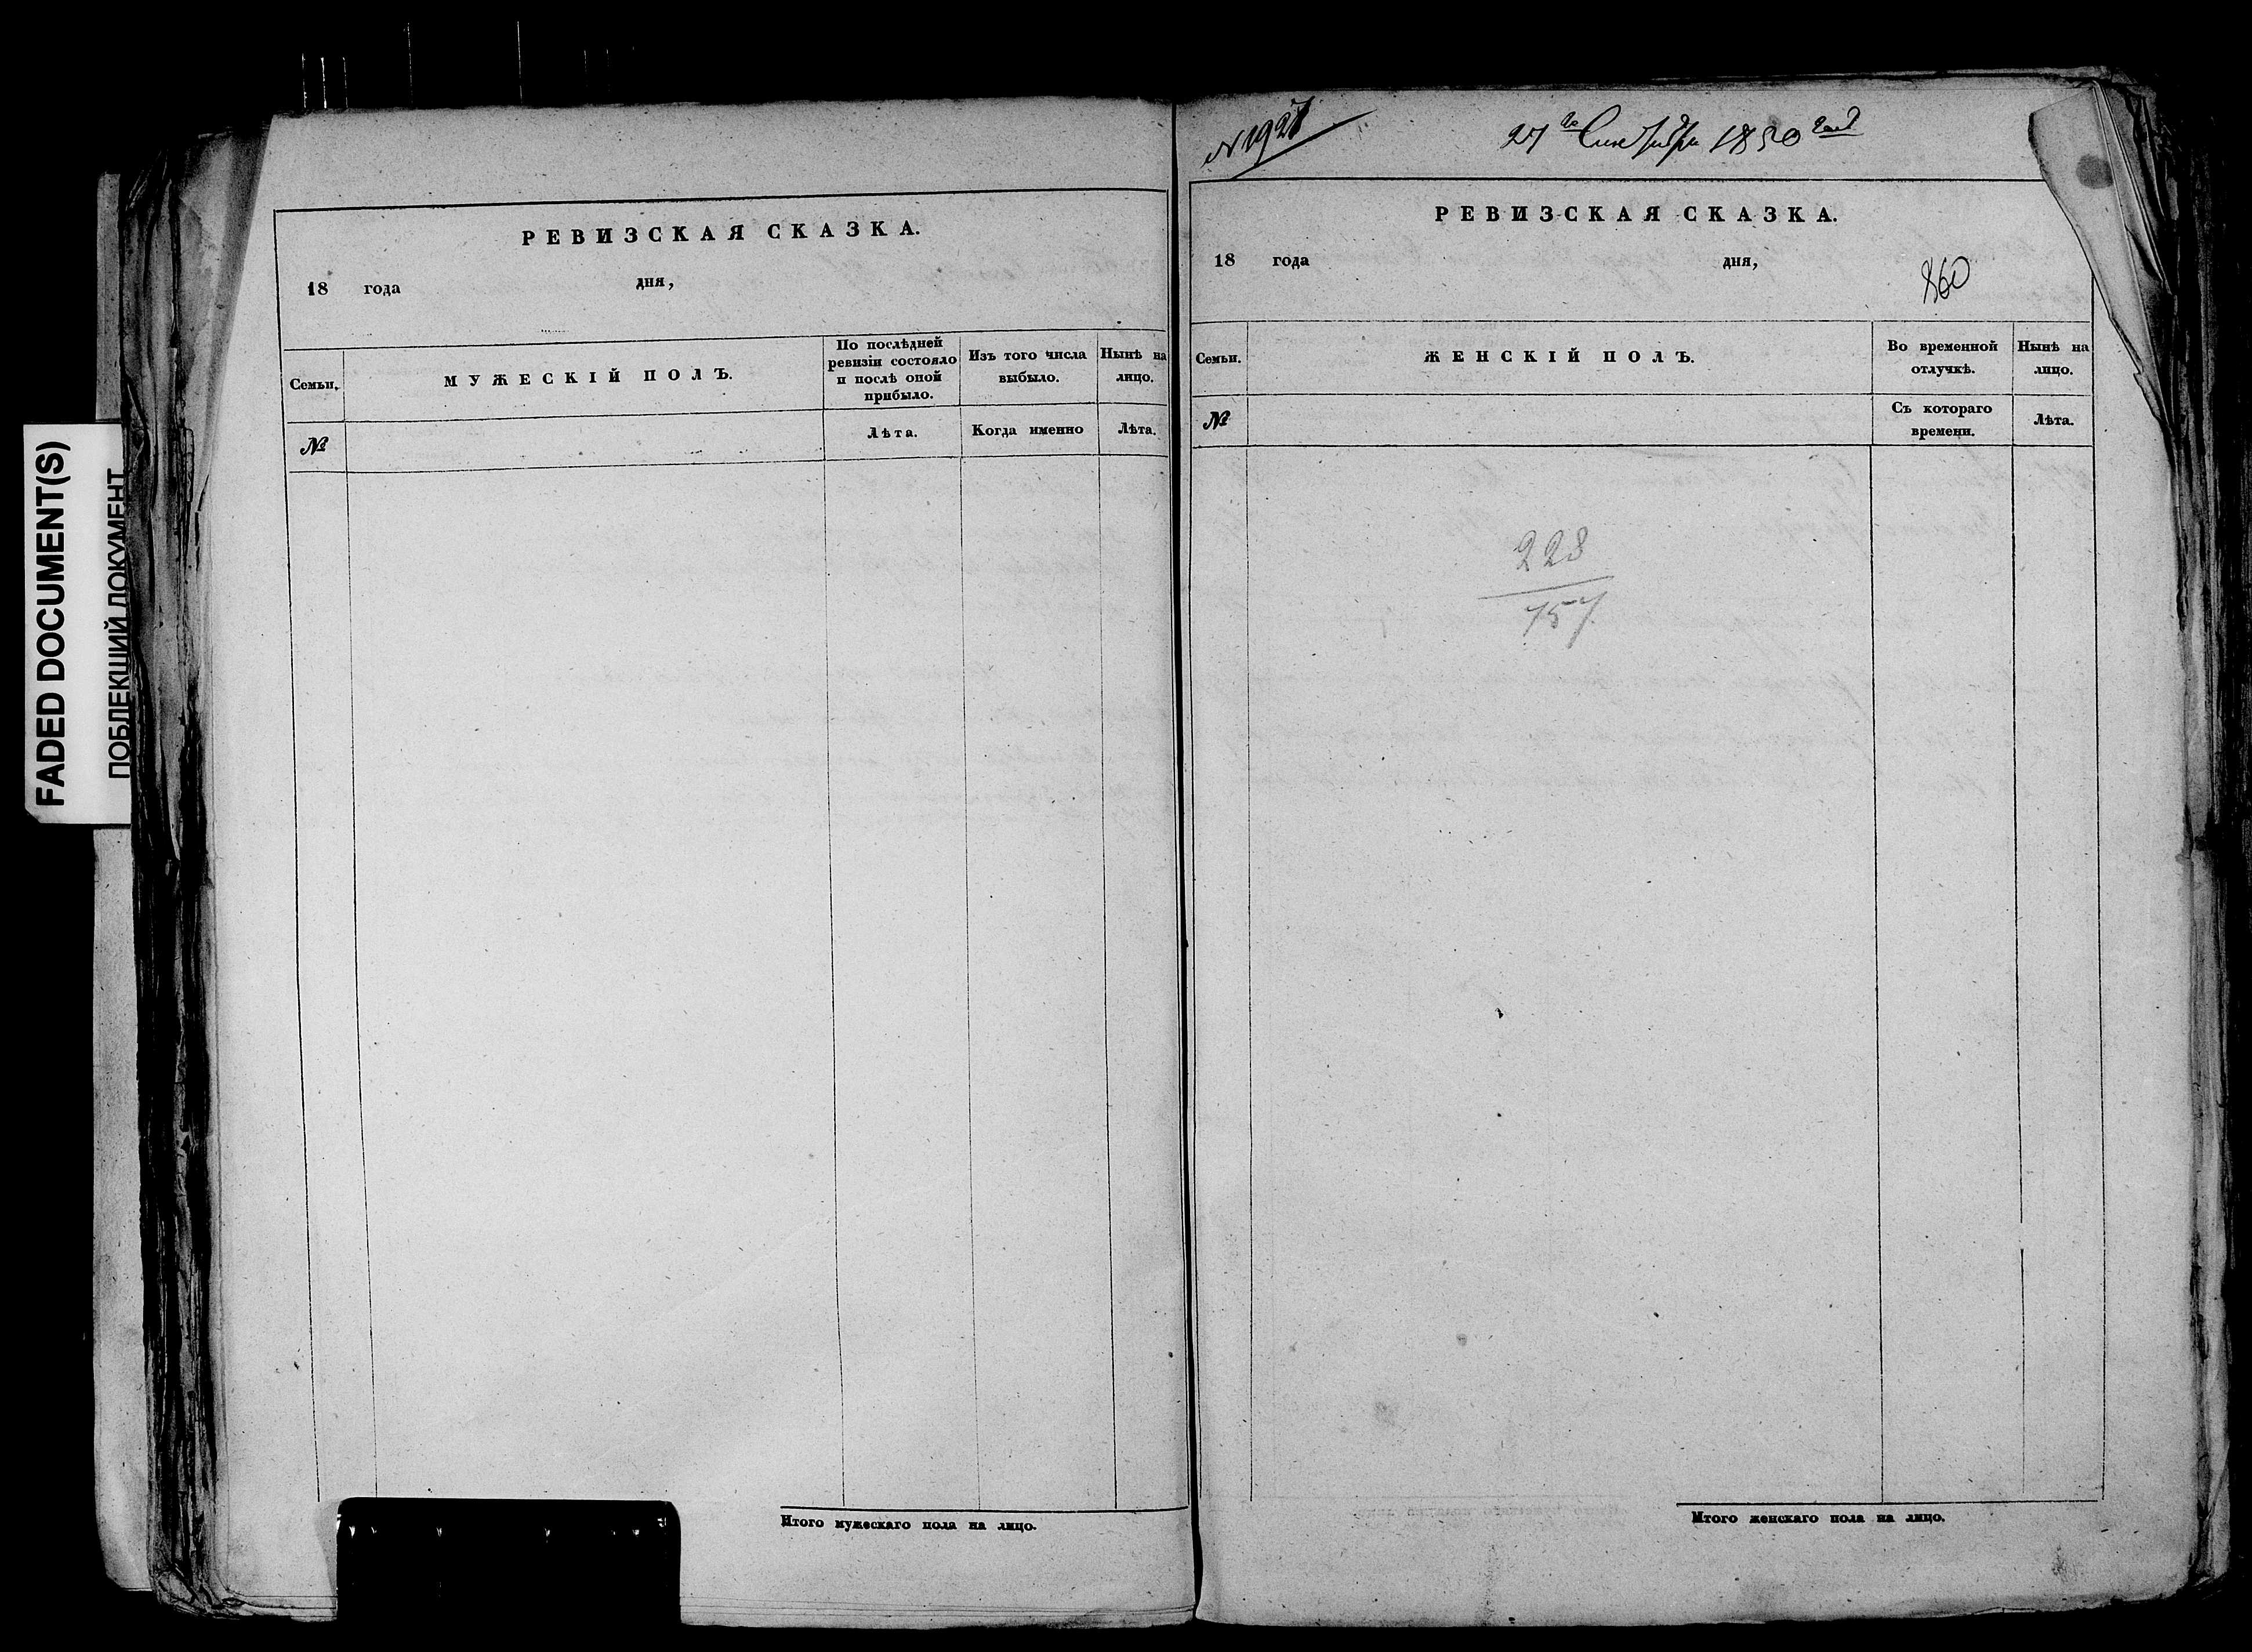 FADED DOCUMENT(S)
ПОБЛЕКШИЙ ДОКУМЕНТ
РЕВИЗСКАЯ СКАЗКА.
18 года дня,
Семьи.
МУЖЕСКІЙ ПОЛЪ.
По послѣдней
ревизіи состояло
и послѣ оной
прибыло.
Изъ того числа
выбыло.
Нынѣ на
лицо.
№
Лѣта.
Когда именно
Лѣта.
Итого мужескаго пола на лицо.
№ 1927
27го Сентября 1850 года
РЕВИЗСКАЯ СКАЗКА.
18 года дня,
860
Семьи.
ЖЕНСКІЙ ПОЛЪ.
Во временной
отлучкѣ.
Нынѣ на
лицо.
№
Съ котораго
времени.
Лѣта.
228
757
Итого женскаго пола на лицо.